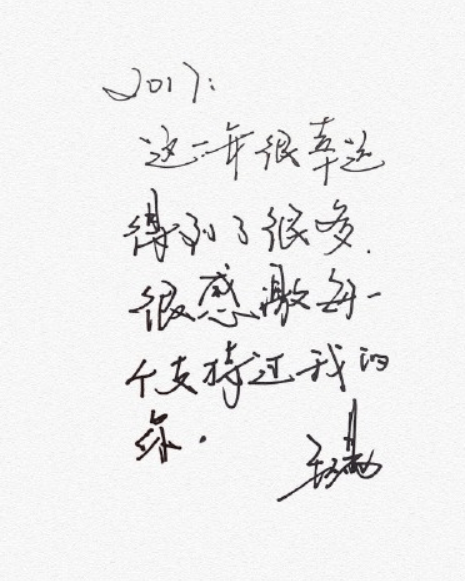 2017:
这一年很幸运
得到了很多.
很感激每一
个支持过我的
你.